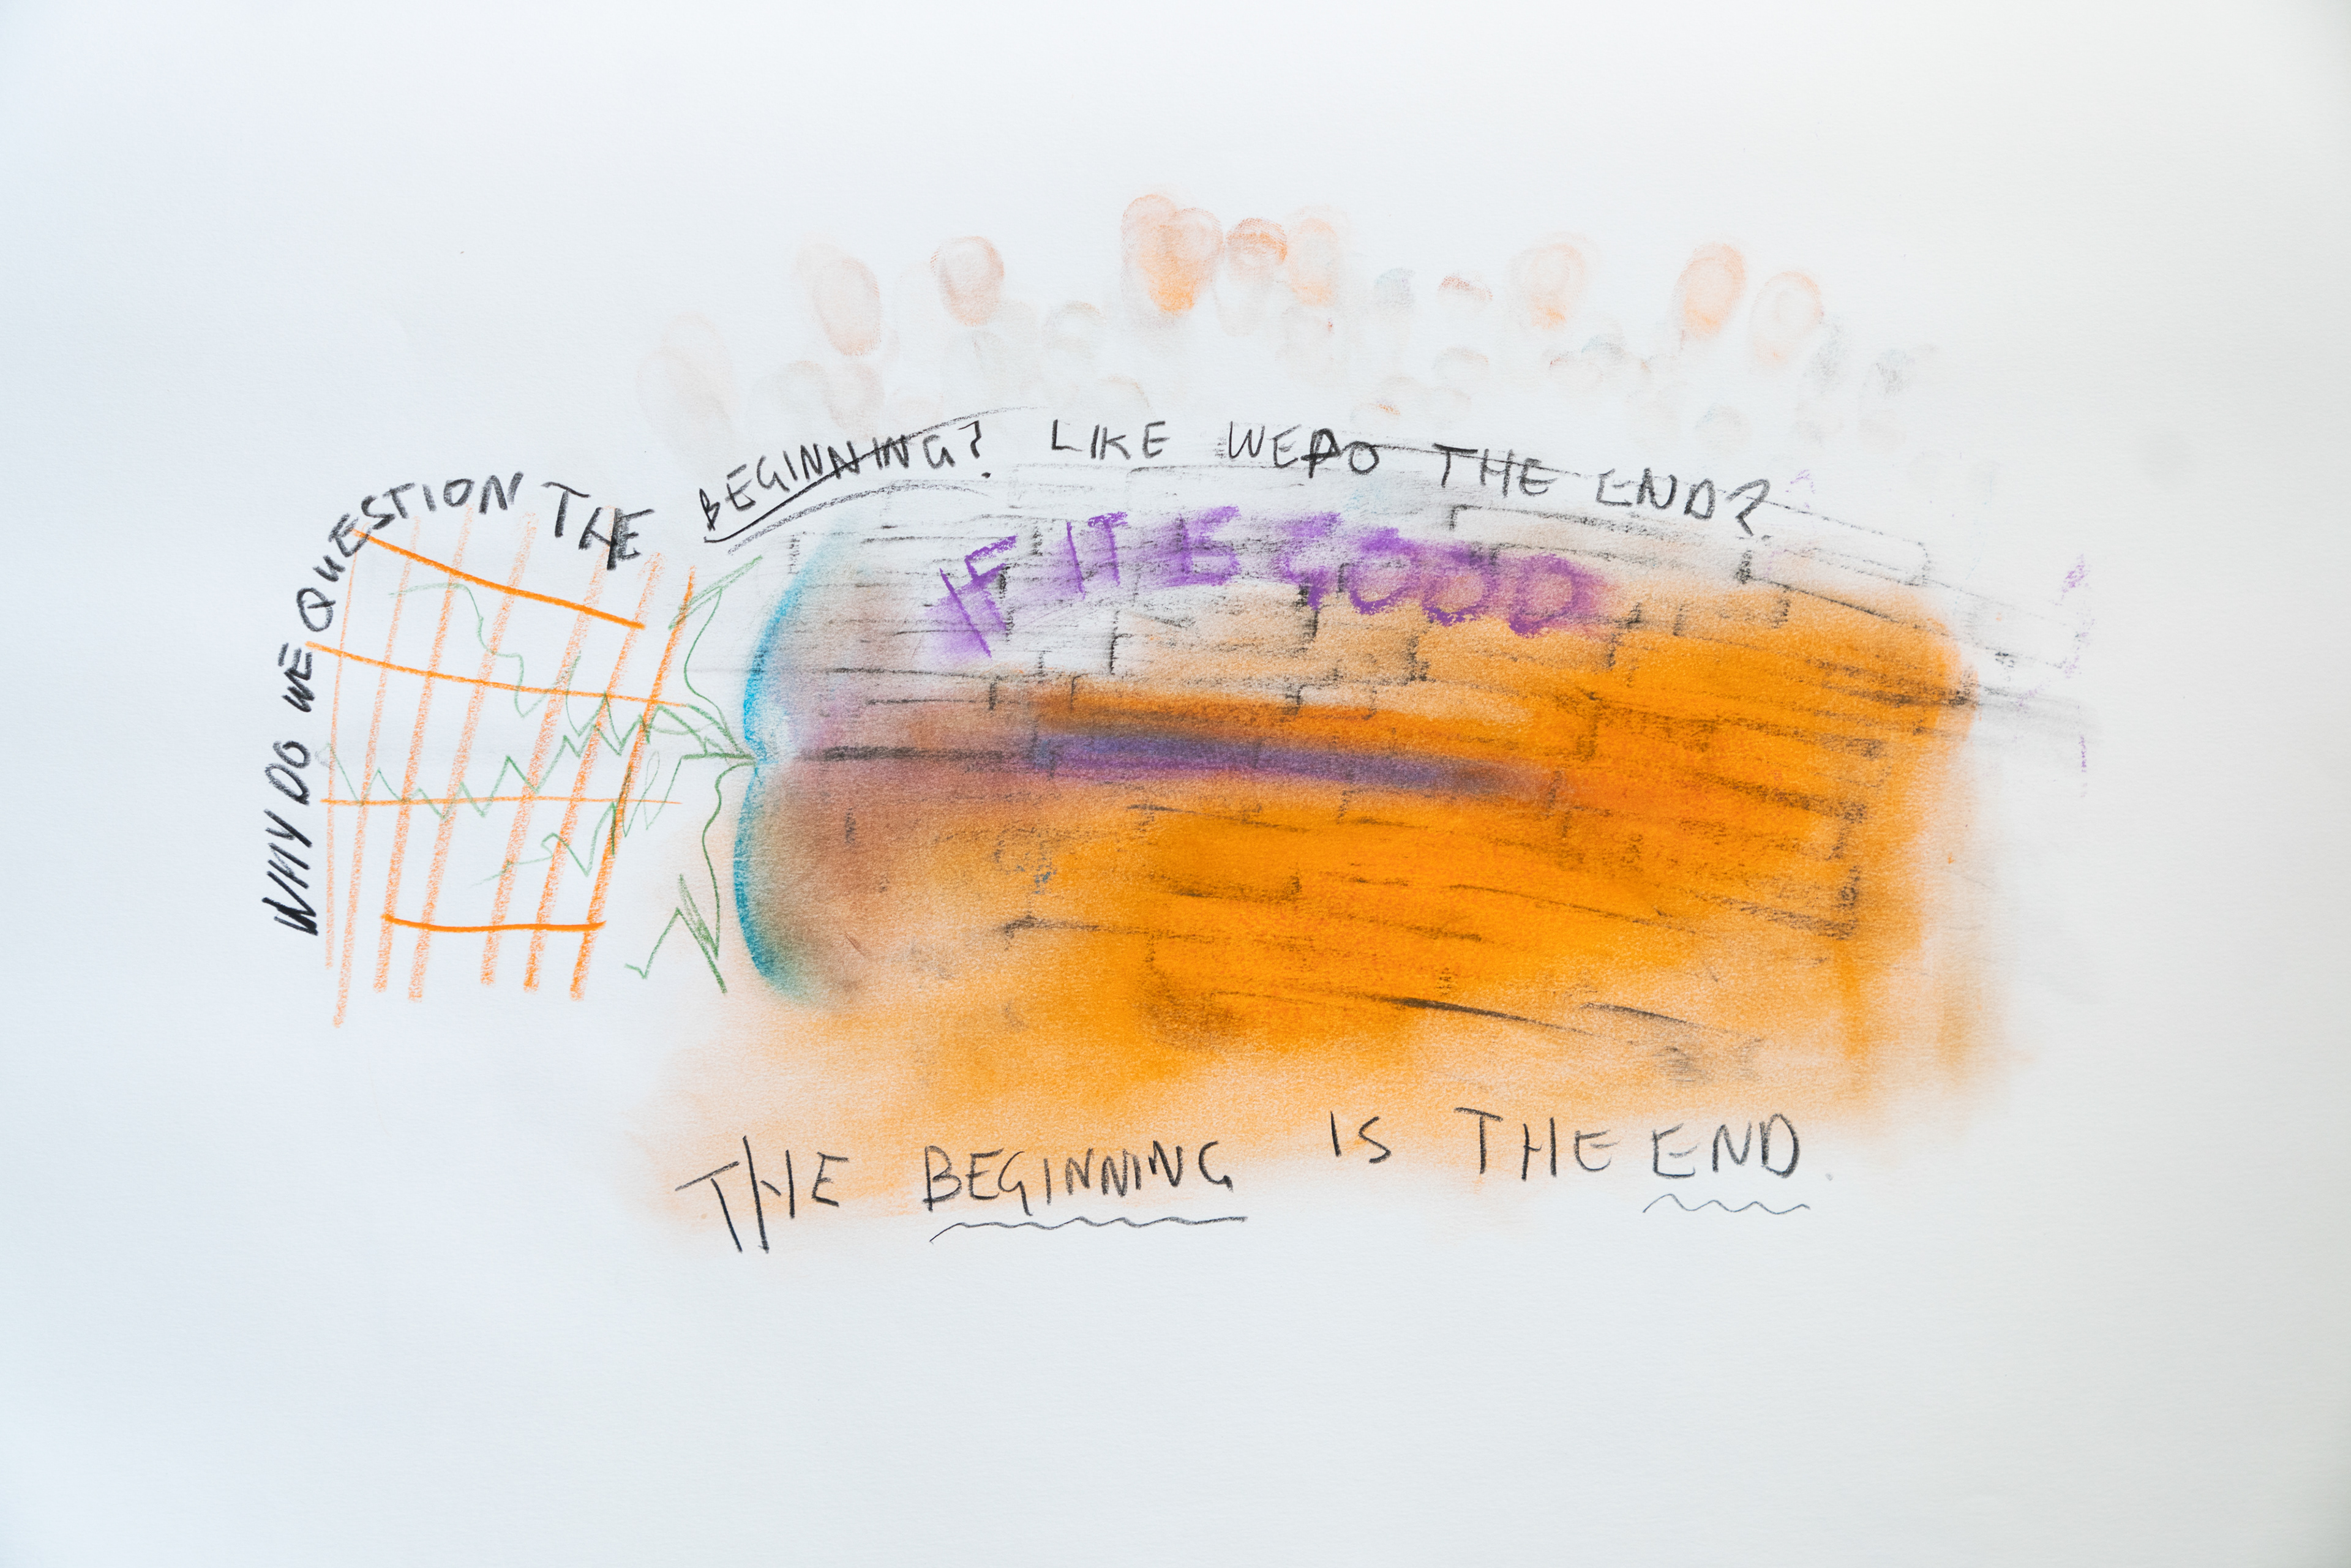 WHY DO WE QUESTION THE BEGINNING? LIKE WE DO THE END?
IF IT IS GOOD
THE BEGINNING IS THE END.